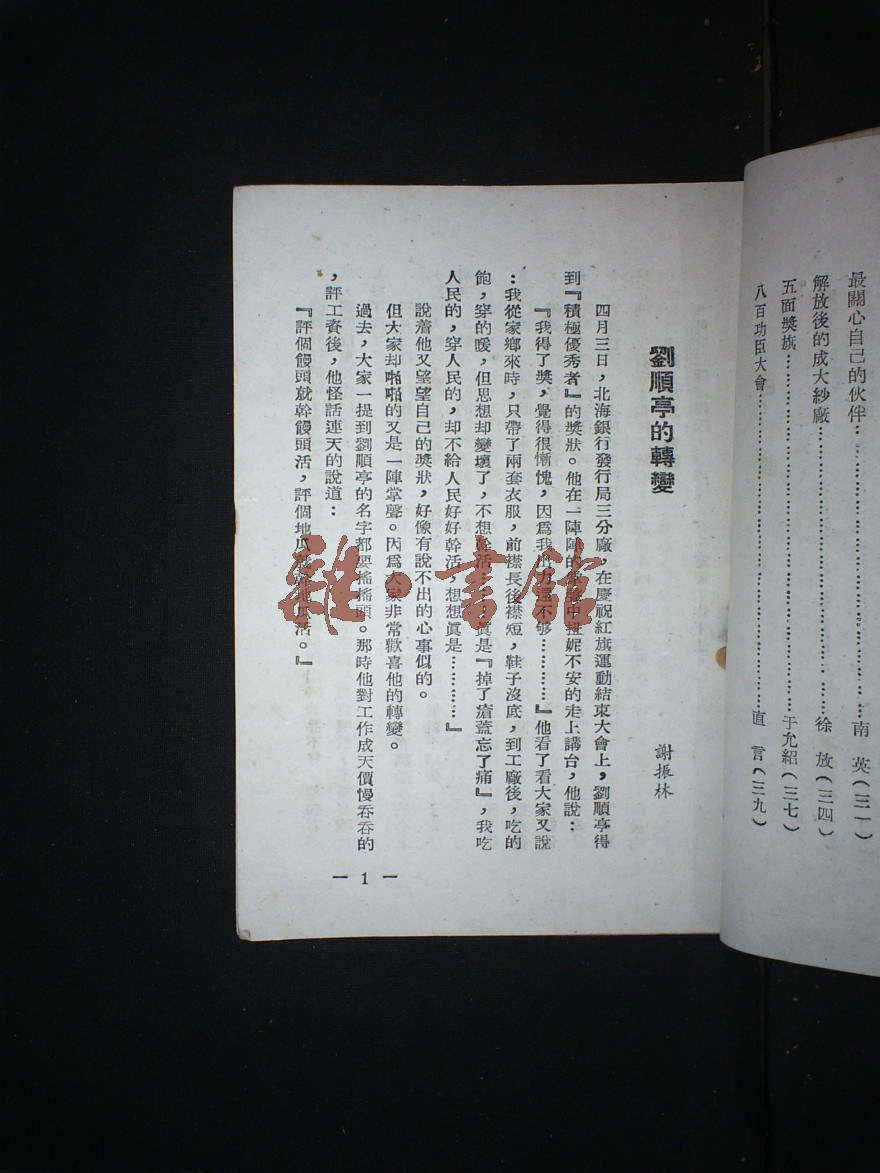 最關心自己的伙伴…………………………南 英(三一)
解放後的成大紗廠…………………………徐 放(三四)
五面獎旗…………………………于允紹(三七)
八百功臣大會…………………………直 言(三九)
劉順亭的轉變
謝振林
四月三日,北海銀行發行局三分廠,在慶祝紅旗運動結束大會上,劉順亭得
到『積極優秀者』的獎狀。他在一陣陣的掌聲中扭妮不安的走上講台,他說:
『我得了獎,覺得很慚愧,因爲我出力還不够…………』他看了看大家又說
:我從家鄉來時,只帶了兩套衣服,前襟長後襟短,鞋子沒底,到工廠後,吃的
飽,穿的暖,但思想却變壞了,不想幹活……眞是『掉了瘡蓋忘了痛』,我吃
人民的,穿人民的,却不給人民好好幹活,想想眞是…………』
說着他又望望自己的獎狀,好像有說不出的心事似的。
但大家却啪啪的又是一陣掌聲。因爲大家非常歡喜他的轉變。
過去,大家一提到劉順亭的名字都要搖搖頭。那時他對工作成天價慢吞吞的
,評工資後,他怪話連天的說道:
『評個饅頭就幹饅頭活,評個地瓜就幹地瓜活。』
— 1 —
雜·書館